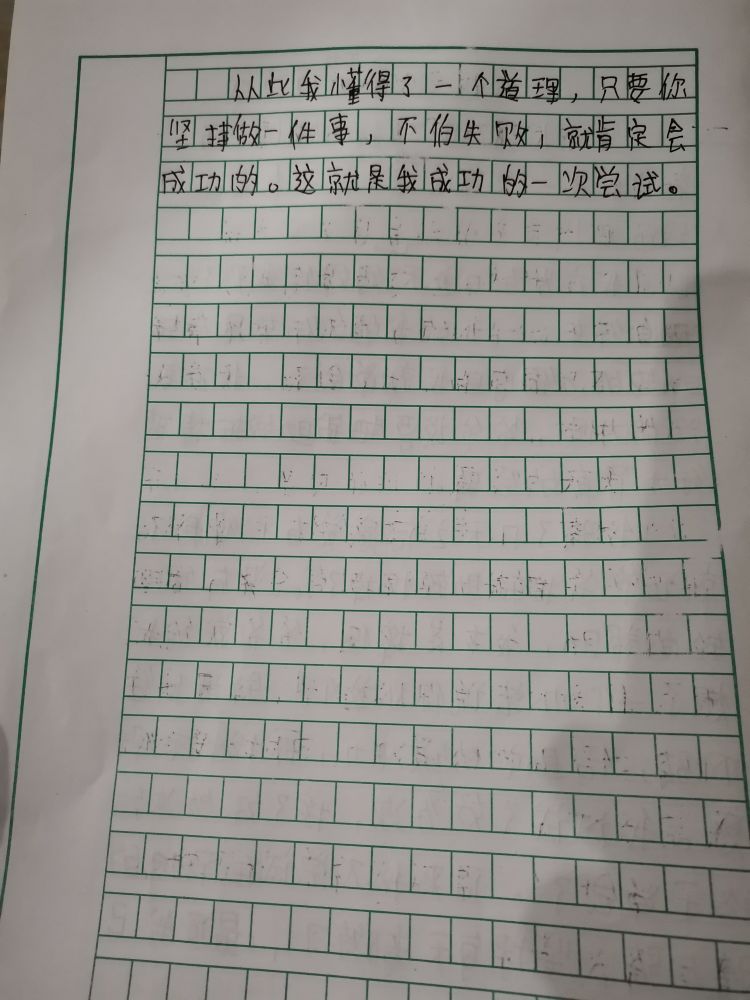 从此我懂得了一个道理，只要你
坚持做一件事，不怕失败，就肯定会
成功的。这就是我成功的一次尝试。